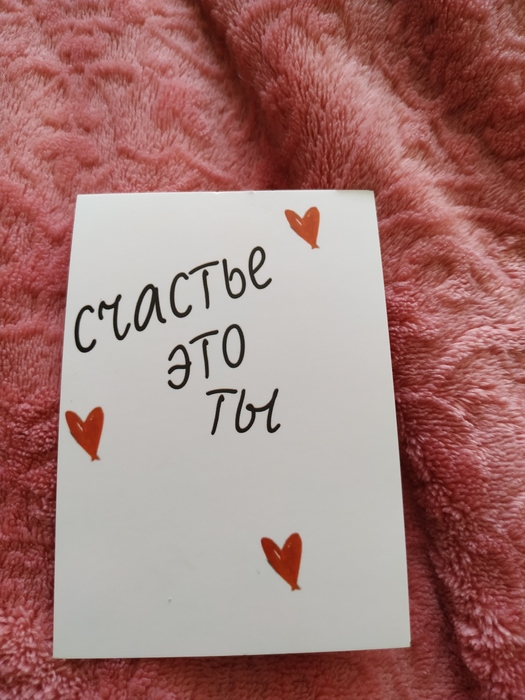 счастье
это
ты